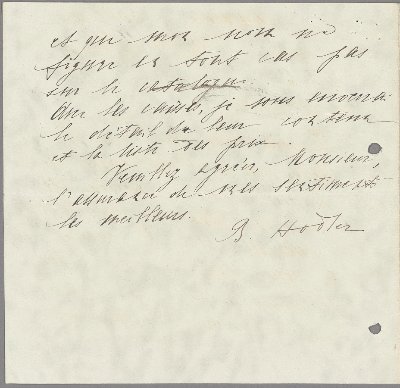 et que mon nom ne
figure en tout cas pas
sur le catalogue.
les caisses, je vous enverrai
le détail de leur contenu
et la liste des prix.
Veuillez agréer, Monsieur,
l'assurance de mes sentiments
les meilleurs.
B. Hodler